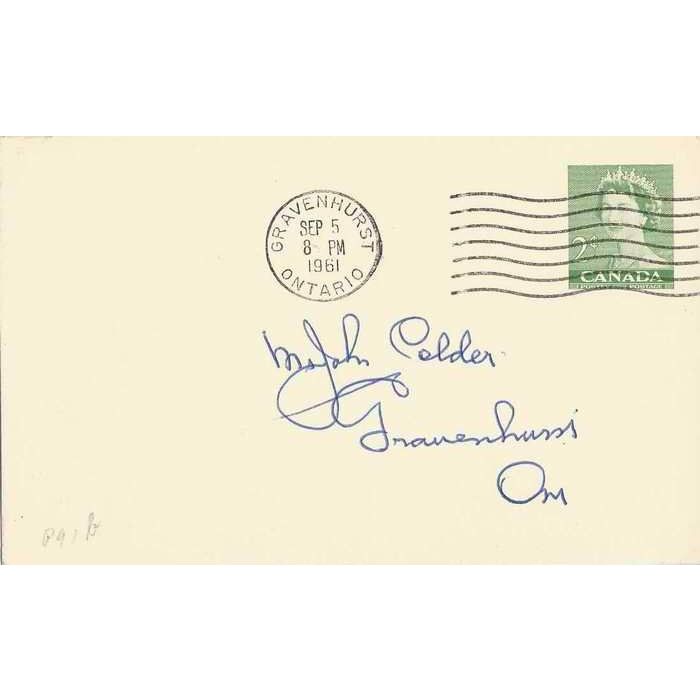 GRAVENHURST
SEP 5
8 PM
1961
ONTARIO
2¢
CANADA
POSTES POSTAGE
Mr John Calder
Gravenhurst
Ont